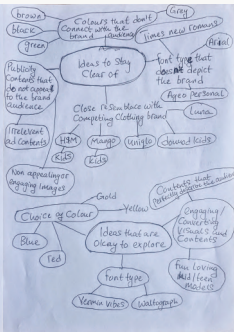 brown
black
green
Colours that don't
Connect with the
brand audience
Grey
Times new romans
Arial
font type that
doesn't depict
the brand
Agro personal
luna
Ideas to Stay
Clear of
Publicity
Contents that
do not appeal
to the brand
audience
Irrelevant
ad contents
Non appealing or
engaging Images
Close resemblance with
Competing Clothing brand
H&M
kids
Mango
kids
uniqlo
kids
Gold
Yellow
Choice of Colour
Blue
red
Ideas that are
Okay to explore
font type
Vermin vibes
Waltograph
Contents that
Engaging/
Converting
Visuals and
Contents
fun Loving
kid/teen
Models